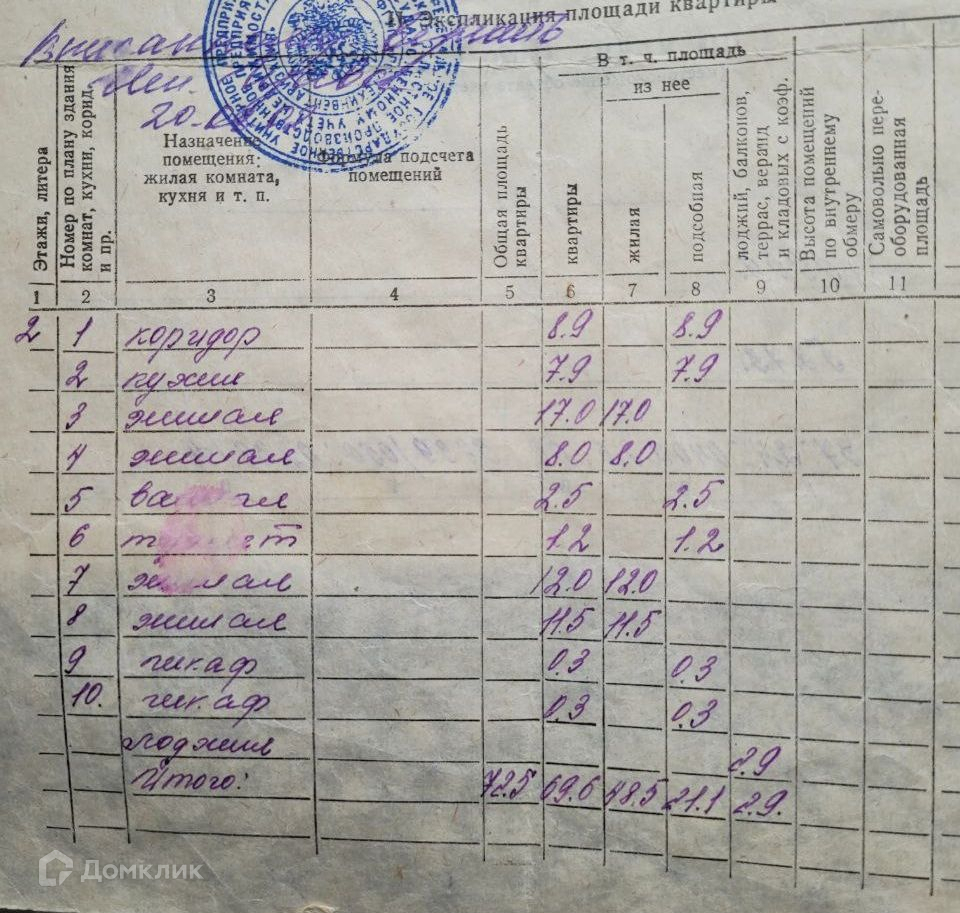 IV Экспликация площади квартиры
Выписан
20.0
Этажи, литера
Номер по плану здания комнат, кухни, корид. и пр.
Назначение
помещения:
жилая комната,
кухня и т. п.
Формула подсчета
помещений
Общая площадь
квартиры
В т. ч. площадь
из нее
квартиры
жилая
подсобная
лоджий, балконов,
террас, веранд
и кладовых с коэф.
Высота помещений
по внутреннему
обмеру
Самовольно пере-
оборудованная
площадь
1 2 3 4 5 6 7 8 9 10 11
2 1 коридор 8.9 8.9
2 кухня 7.9 7.9
3 жилая 17.0 17.0
4 жилая 8.0 8.0
5 ванная 2.5 2.5
6 туалет 1.2 1.2
7 жилая 12.0 12.0
8 жилая 11.5 11.5
9 шкаф 0.3 0.3
10. шкаф 0.3 0.3
лоджия 2.9
Итого: 72.5 69.6 48.5 21.1 2.9.
Домклик